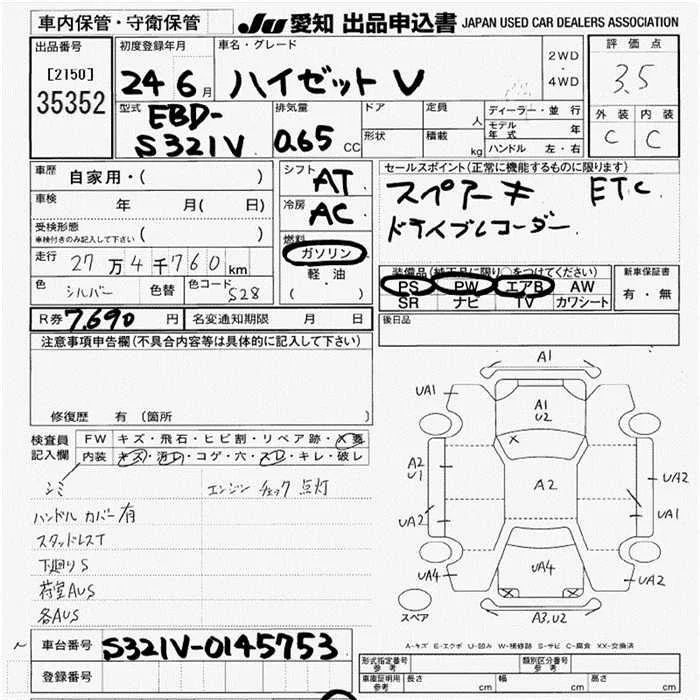 車内保管・守衛保管
JU 愛知 出品申込書 JAPAN USED CAR DEALERS ASSOCIATION
出品番号
[2150]
35352
初度登録年月
24 6月
車名・グレード
ハイゼット V
2WD
・
4WD
評価点
3.5
外装 内装
C C
型式
EBD-
S321V
排気量
0.65 CC
ドア
定員 人
形状
積載 kg
ディーラー・並行
モデル年式 年
ハンドル 左・右
車歴 自家用・( )
車検 年 月( 日)
受検形態
車検付きのみ記入して下さい ( )
走行 27万4千760km
色 シルバー 色替 色コード S28
シフト AT
冷房 AC
燃料
ガソリン
軽油
( )
セールスポイント(正常に機能するものに限ります)
スペアーキ ETC
ドライブレコーダー
装備品(純正品に限り○をつけてください)
PS PW エアB AW
SR ナビ TV カワシート
新車保証書
有・無
R券 7,690 円 名変通知期限 月 日
後日品
注意事項申告欄(不具合内容等は具体的に記入して下さい)
修復歴 有(箇所 )
検査員
記入欄
FW キズ・飛石・ヒビ割・リペア跡・X要
内装 キズ・汚レ・コゲ・穴・スレ・キレ・破レ
シミ エンジン チェック 点灯
ハンドル カバー有
スタッドレスT
下廻りS
荷室AUS
各AUS
A1
UA1
A1
U2
A2
U1
A2
UA2
UA2
UA1
UA4
UA4
UA2
スペア
A3.U2
A-キズ E-エクボ U-凹み W-補修跡 S-サビ C-腐食 XX-交換済
車台番号 S321V-0145753
登録番号
形式指定番号
参考
類別区分番号
参考
車庫証明用
参考
長さ cm 幅 cm 高さ cm